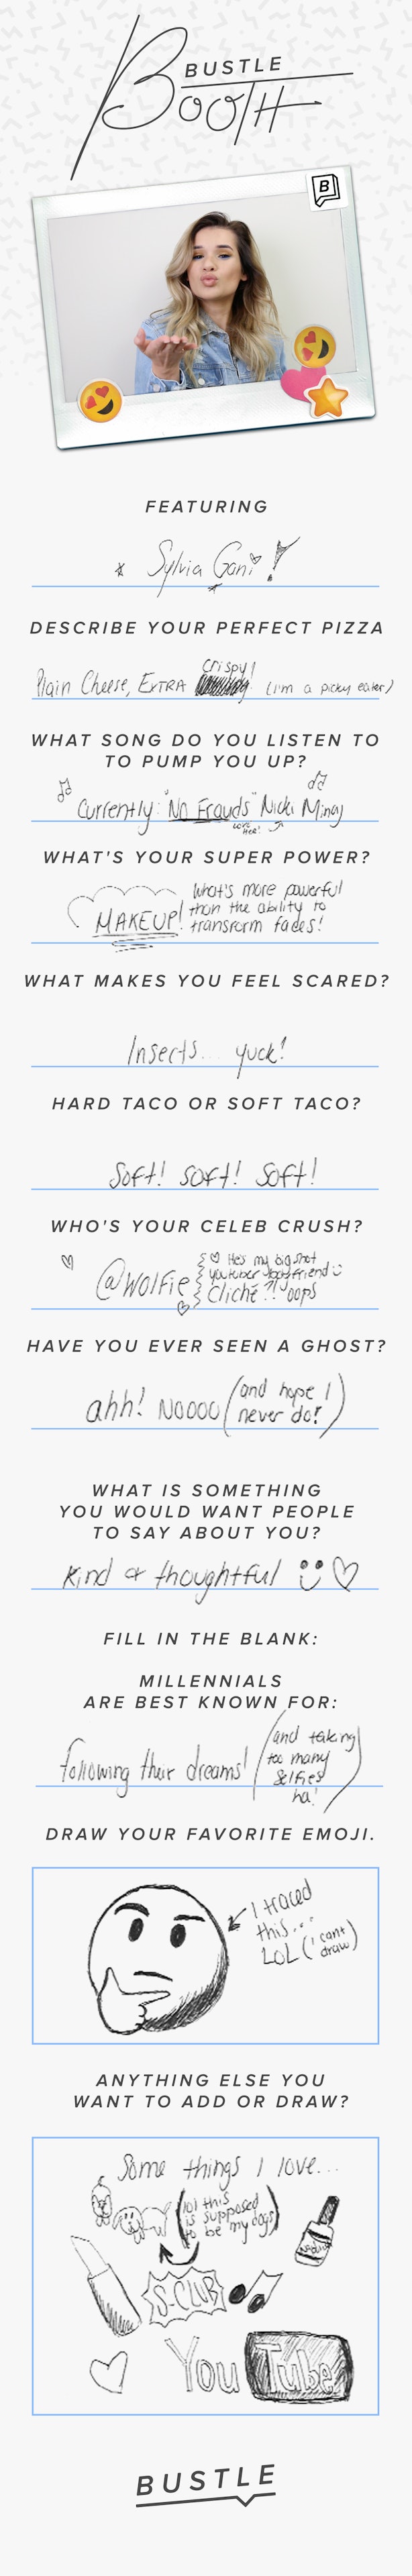 BUSTLE
BOOTH
B
FEATURING
Sylvia Gani!
DESCRIBE YOUR PERFECT PIZZA
crispy!
Plain Cheese, EXTRA (I'm a picky eater)
WHAT SONG DO YOU LISTEN TO
TO PUMP YOU UP?
Currently: "No Frauds" Nicki Minaj
love
her!
WHAT'S YOUR SUPER POWER?
MAKEUP!
What's more powerful
than the ability to
transform faces!
WHAT MAKES YOU FEEL SCARED?
Insects... yuck!
HARD TACO OR SOFT TACO?
Soft! soft! soft!
WHO'S YOUR CELEB CRUSH?
@Wolfie
He's my big shot
youtuber boyfriend
Cliché?! oops
HAVE YOU EVER SEEN A GHOST?
ahh! Noooo (and hope I
never do!)
WHAT IS SOMETHING
YOU WOULD WANT PEOPLE
TO SAY ABOUT YOU?
Kind & thoughtful
FILL IN THE BLANK:
MILLENNIALS
ARE BEST KNOWN FOR:
following their dreams!
(and taking
too many
selfies
ha!)
DRAW YOUR FAVORITE EMOJI.
I traced
this...
LOL (I cant
draw)
ANYTHING ELSE YOU
WANT TO ADD OR DRAW?
Some things I love...
(lol this
is supposed
to be my dogs)
S-CLUB
You Tube
BUSTLE